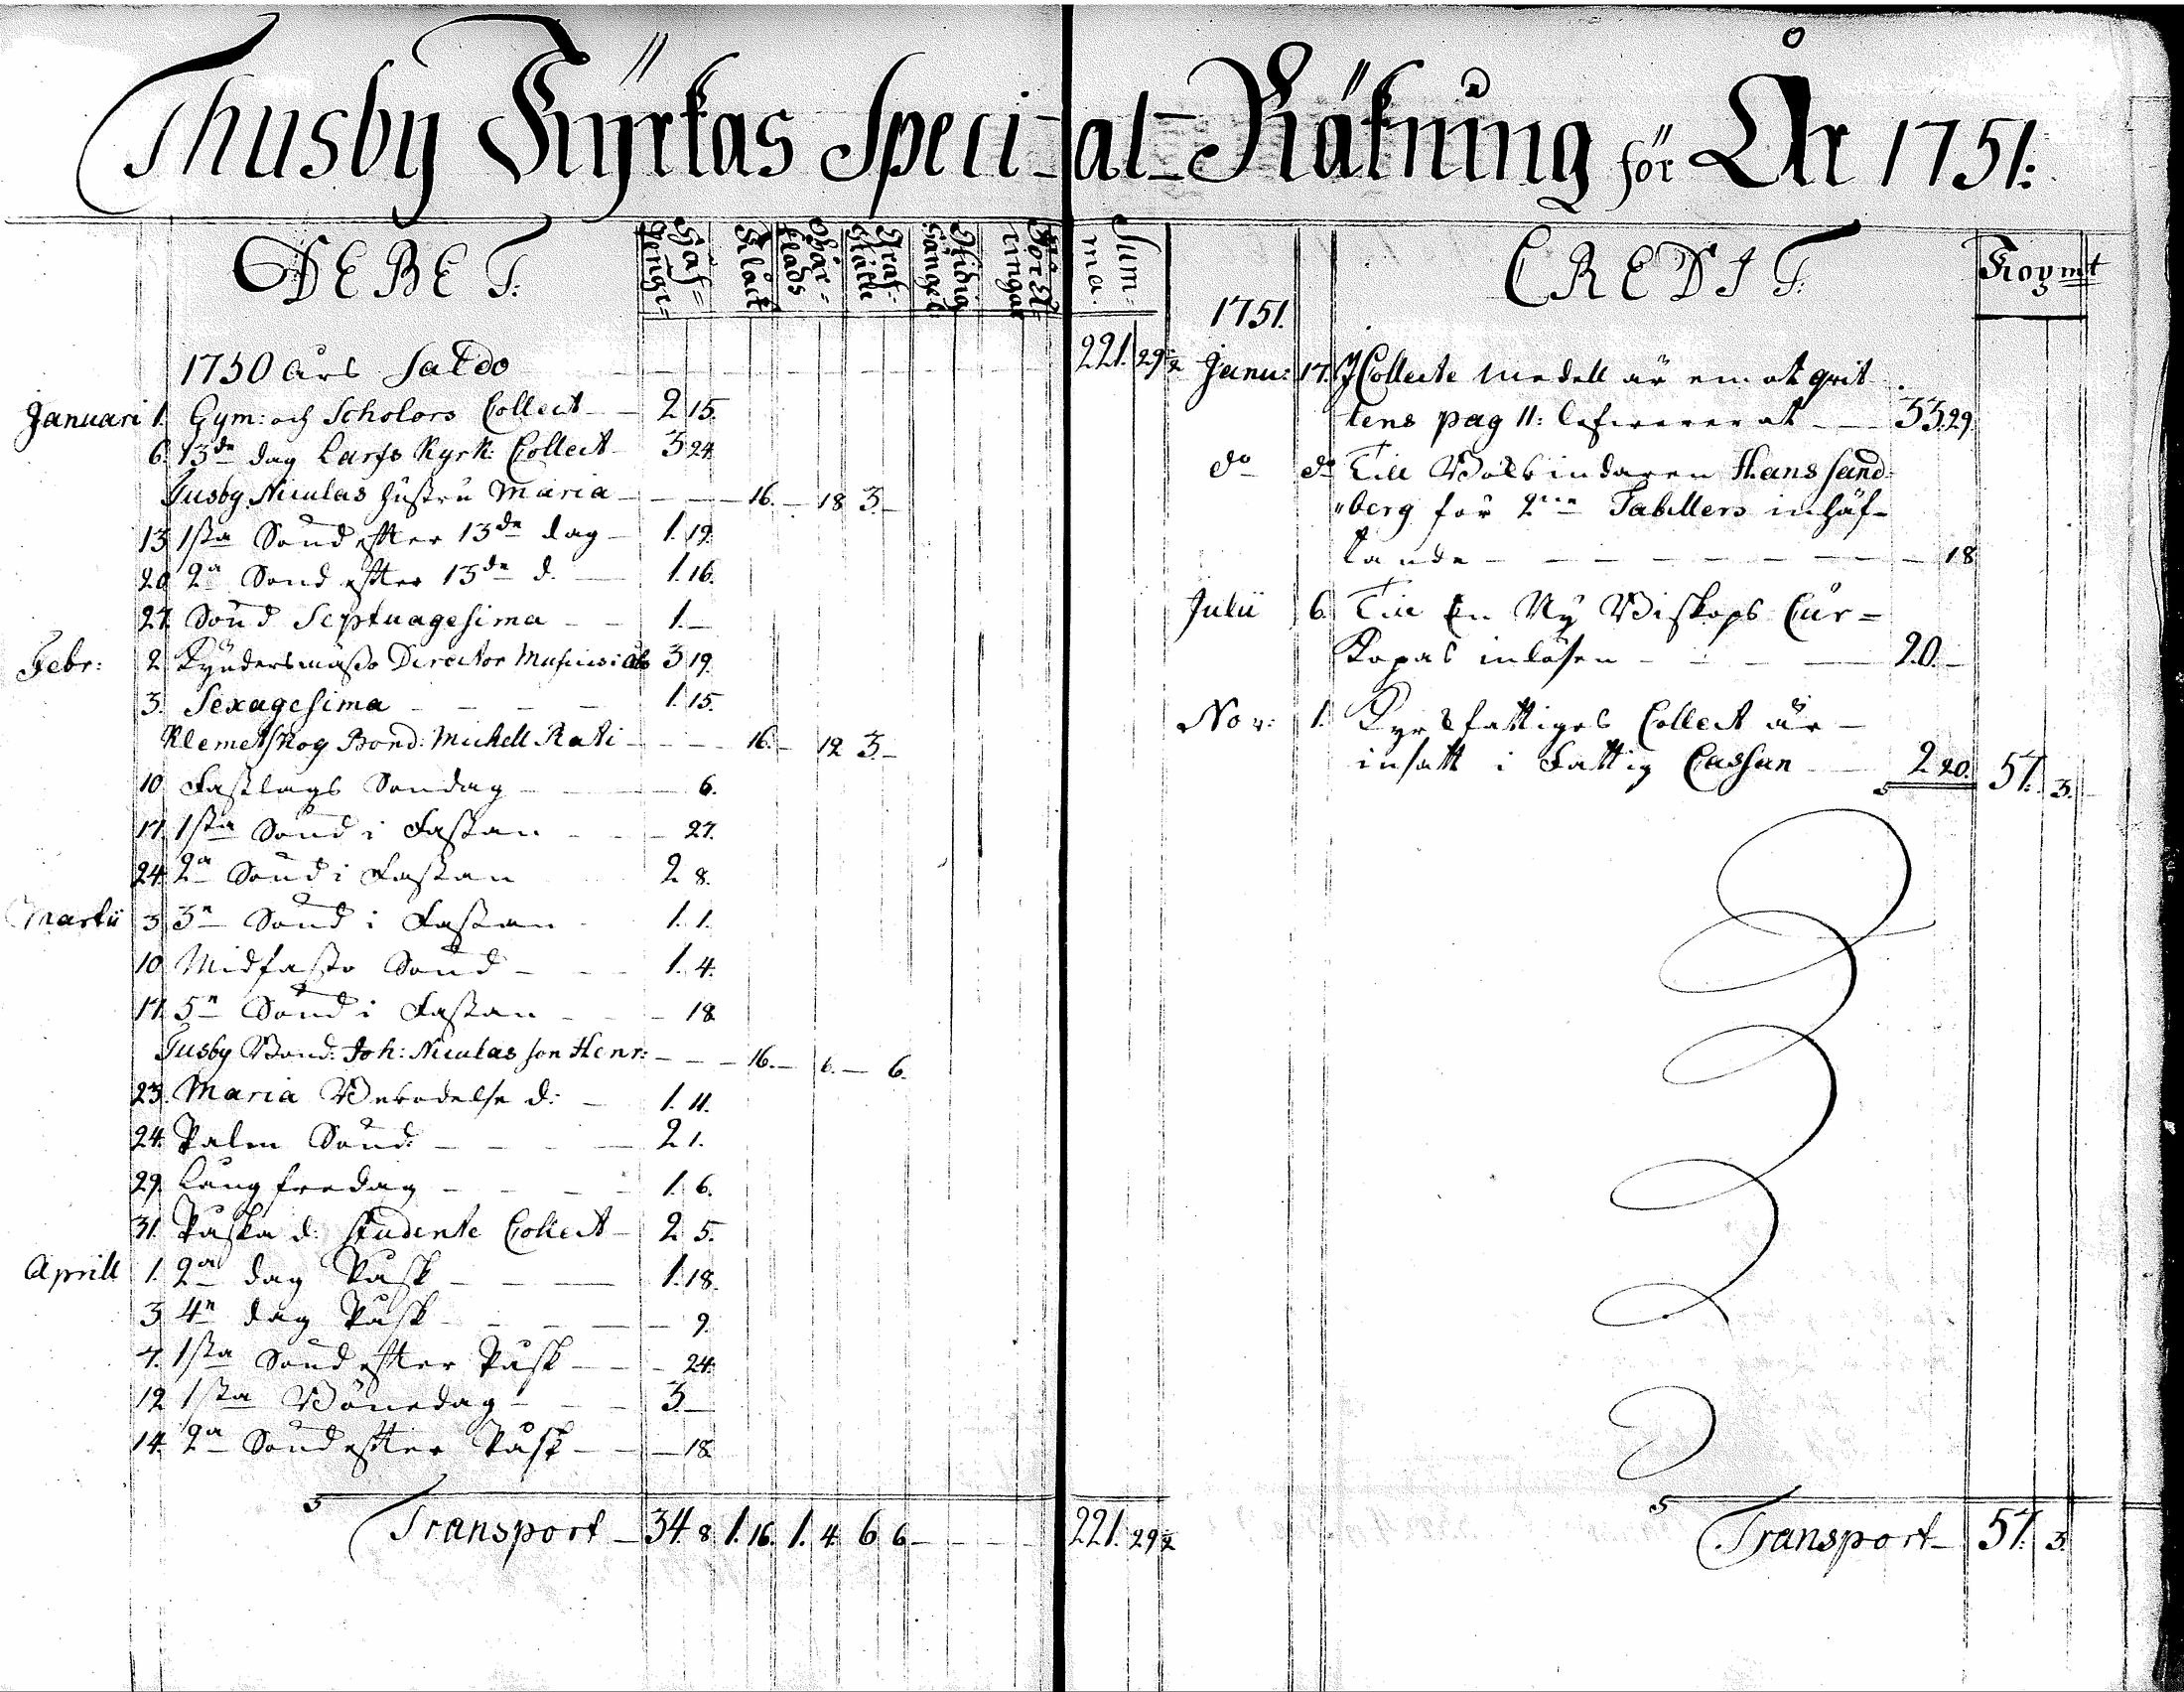 Thusby Kyrkas Speci-al-Räkning för År 1751:
DEBET.
Håf-Pengr= Klåck Bår-klads Graf-Ställe Sängel Förä-ringar Sum-ma.
1750 års Saldo 221. 29½
Januari 1. Gym: och Scholors Collect 2 15.
6. 13de dag Larss Kyrk: Collect 3 24.
Tusby Niculas hustru Maria 16. 18 3.
13 1sta Sond efter 13de dag 1. 19.
20 2a Sond efter 13de d. 1. 16.
27. Sond Septuagesima 1.
Febr: 2 Kyndersmässo Director Musices: 3 19.
3. Sexagesima 1. 15.
Klemetskog Bond: Michell Mati 16. 12 3.
10 Fastlags Sondag 6.
17. 1sta Sond i Fastan 27.
24. 2a Sond i Fastan 2 8.
Martii 3 3e Sond i Fastan 1. 1.
10 Midfasto Sond 1. 4.
17. 5e Sond i Fastan 18
Tusby Bond: Joh: Niculas son Henr: 16. 6. 6.
25. Maria Bebodelse d: 1. 11.
24. Palm Sond: 2 1.
29. Långfredag 1. 6.
31. Påska d: Studente Collect 2 5.
Aprill 1. 2a dag Påsk 1. 18.
3 4e dag Påsk 9.
7. 1sta Sond efter Påsk 24.
12 1sta Bönedag 3.
14. 2a Sond efter Påsk 18
Transport 34. 8 1. 16. 1. 4. 6 6 221. 29½
CREDIT. Kopmt
1751.
Janu: 17. Collecte medell är en: at qvit
tens pag 11: lefwererat 33. 29.
do do Till Bokbindaren Hans Sand
"berg för 2ne Tabellers inhäf-
tande 18
Julii 6. Till En Ny Biskops Cår=
Kapas inlösen 20.
Nov: 1. Kyrkfattiges Collect är
insatt i Fattig Cassan 2 20. 57. 3.
Transport 57. 3.